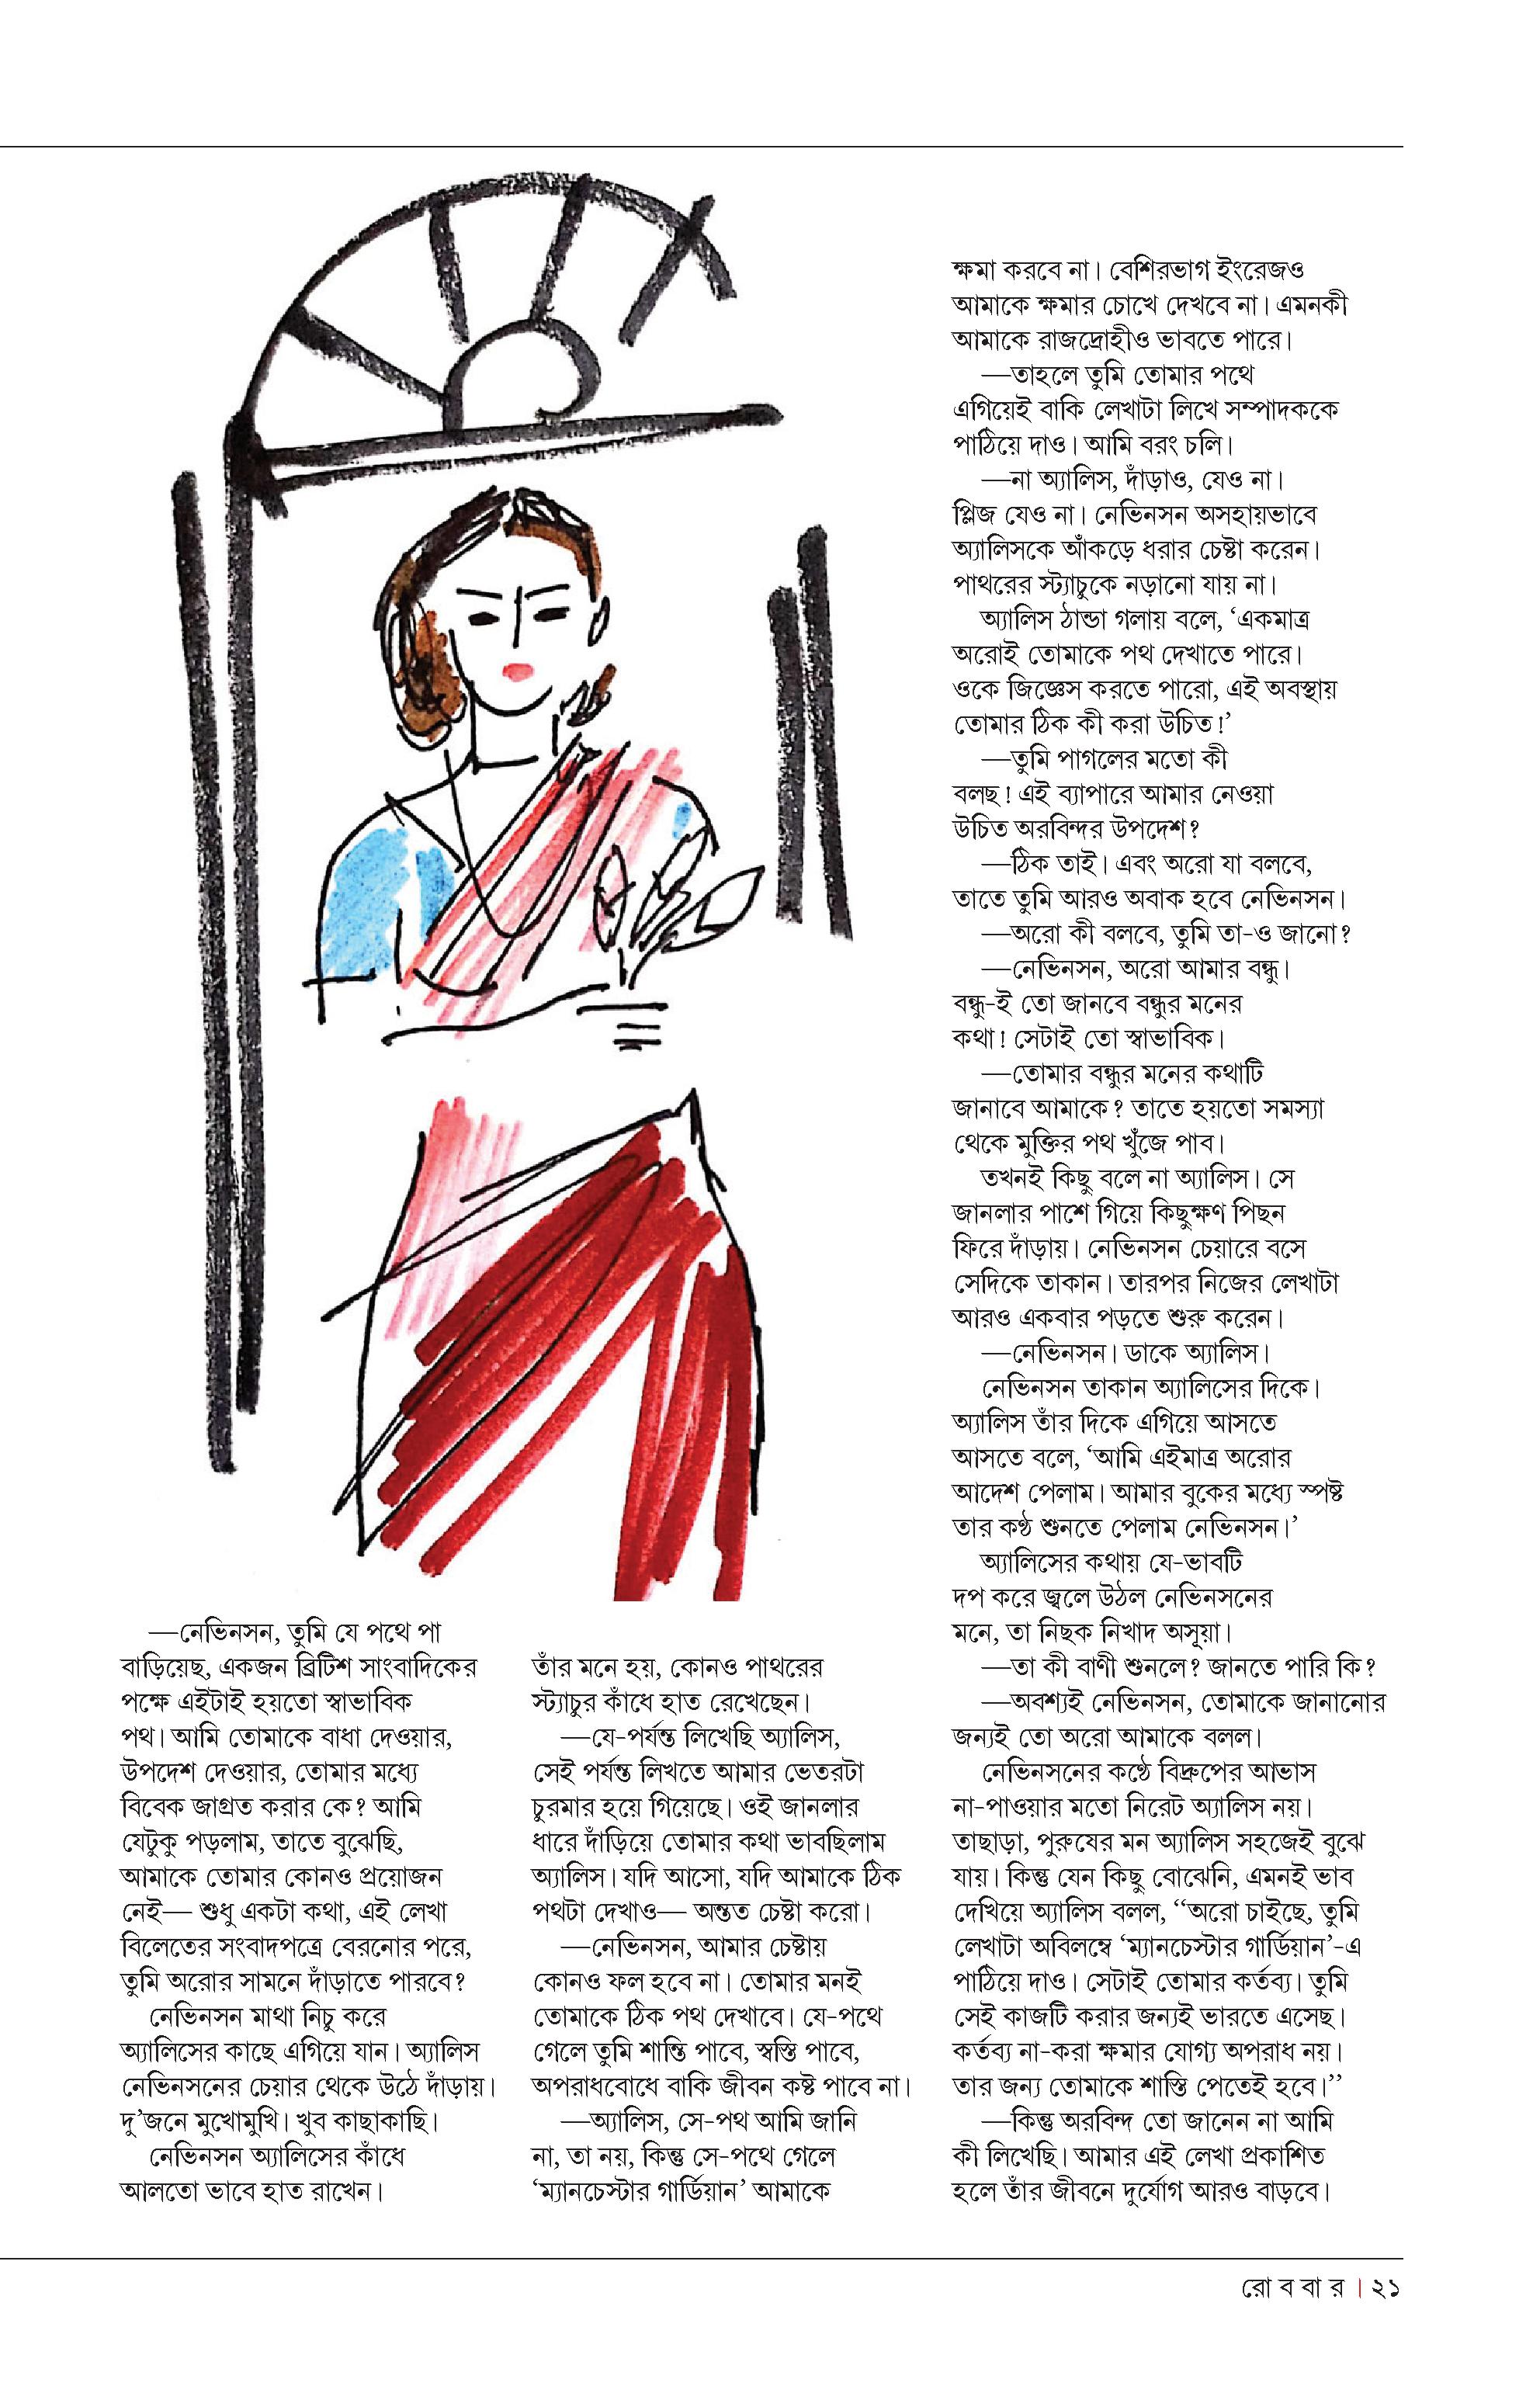 —নেভিনসন, তুমি যে পথে পা
বাড়িয়েছ, একজন ব্রিটিশ সাংবাদিকের
পক্ষে এইটাই হয়তো স্বাভাবিক
পথ। আমি তোমাকে বাধা দেওয়ার,
উপদেশ দেওয়ার, তোমার মধ্যে
বিবেক জাগ্রত করার কে? আমি
যেটুকু পড়লাম, তাতে বুঝেছি,
আমাকে তোমার কোনও প্রয়োজন
নেই— শুধু একটা কথা, এই লেখা
বিলেতের সংবাদপত্রে বেরনোর পরে,
তুমি অরোর সামনে দাঁড়াতে পারবে?
নেভিনসন মাথা নিচু করে
অ্যালিসের কাছে এগিয়ে যান। অ্যালিস
নেভিনসনের চেয়ার থেকে উঠে দাঁড়ায়।
দু’জনে মুখোমুখি। খুব কাছাকাছি।
নেভিনসন অ্যালিসের কাঁধে
আলতো ভাবে হাত রাখেন।
তাঁর মনে হয়, কোনও পাথরের
স্ট্যাচুর কাঁধে হাত রেখেছেন।
—যে-পর্যন্ত লিখেছি অ্যালিস,
সেই পর্যন্ত লিখতে আমার ভেতরটা
চুরমার হয়ে গিয়েছে। ওই জানলার
ধারে দাঁড়িয়ে তোমার কথা ভাবছিলাম
অ্যালিস। যদি আসো, যদি আমাকে ঠিক
পথটা দেখাও— অন্তত চেষ্টা করো।
—নেভিনসন, আমার চেষ্টায়
কোনও ফল হবে না। তোমার মনই
তোমাকে ঠিক পথ দেখাবে। যে-পথে
গেলে তুমি শান্তি পাবে, স্বস্তি পাবে,
অপরাধবোধে বাকি জীবন কষ্ট পাবে না।
—অ্যালিস, সে-পথ আমি জানি
না, তা নয়, কিন্তু সে-পথে গেলে
‘ম্যানচেস্টার গার্ডিয়ান’ আমাকে
ক্ষমা করবে না। বেশিরভাগ ইংরেজও
আমাকে ক্ষমার চোখে দেখবে না। এমনকী
আমাকে রাজদ্রোহীও ভাবতে পারে।
—তাহলে তুমি তোমার পথে
এগিয়েই বাকি লেখাটা লিখে সম্পাদককে
পাঠিয়ে দাও। আমি বরং চলি।
—না অ্যালিস, দাঁড়াও, যেও না।
প্লিজ যেও না। নেভিনসন অসহায়ভাবে
অ্যালিসকে আঁকড়ে ধরার চেষ্টা করেন।
পাথরের স্ট্যাচুকে নড়ানো যায় না।
অ্যালিস ঠান্ডা গলায় বলে, ‘একমাত্র
অরোই তোমাকে পথ দেখাতে পারে।
ওকে জিজ্ঞেস করতে পারো, এই অবস্থায়
তোমার ঠিক কী করা উচিত!’
—তুমি পাগলের মতো কী
বলছ! এই ব্যাপারে আমার নেওয়া
উচিত অরবিন্দর উপদেশ?
—ঠিক তাই। এবং অরো যা বলবে,
তাতে তুমি আরও অবাক হবে নেভিনসন।
—অরো কী বলবে, তুমি তা-ও জানো?
—নেভিনসন, অরো আমার বন্ধু।
বন্ধু-ই তো জানবে বন্ধুর মনের
কথা! সেটাই তো স্বাভাবিক।
—তোমার বন্ধুর মনের কথাটি
জানাবে আমাকে? তাতে হয়তো সমস্যা
থেকে মুক্তির পথ খুঁজে পাব।
তখনই কিছু বলে না অ্যালিস। সে
জানলার পাশে গিয়ে কিছুক্ষণ পিছন
ফিরে দাঁড়ায়। নেভিনসন চেয়ারে বসে
সেদিকে তাকান। তারপর নিজের লেখাটা
আরও একবার পড়তে শুরু করেন।
—নেভিনসন। ডাকে অ্যালিস।
নেভিনসন তাকান অ্যালিসের দিকে।
অ্যালিস তাঁর দিকে এগিয়ে আসতে
আসতে বলে, ‘আমি এইমাত্র অরোর
আদেশ পেলাম। আমার বুকের মধ্যে স্পষ্ট
তার কণ্ঠ শুনতে পেলাম নেভিনসন।’
অ্যালিসের কথায় যে-ভাবটি
দপ করে জ্বলে উঠল নেভিনসনের
মনে, তা নিছক নিখাদ অসূয়া।
—তা কী বাণী শুনলে? জানতে পারি কি?
—অবশ্যই নেভিনসন, তোমাকে জানানোর
জন্যই তো অরো আমাকে বলল।
নেভিনসনের কণ্ঠে বিদ্রুপের আভাস
না-পাওয়ার মতো নিরেট অ্যালিস নয়।
তাছাড়া, পুরুষের মন অ্যালিস সহজেই বুঝে
যায়। কিন্তু যেন কিছু বোঝেনি, এমনই ভাব
দেখিয়ে অ্যালিস বলল, ‘‘অরো চাইছে, তুমি
লেখাটা অবিলম্বে ‘ম্যানচেস্টার গার্ডিয়ান’-এ
পাঠিয়ে দাও। সেটাই তোমার কর্তব্য। তুমি
সেই কাজটি করার জন্যই ভারতে এসেছ।
কর্তব্য না-করা ক্ষমার যোগ্য অপরাধ নয়।
তার জন্য তোমাকে শাস্তি পেতেই হবে।’’
—কিন্তু অরবিন্দ তো জানেন না আমি
কী লিখেছি। আমার এই লেখা প্রকাশিত
হলে তাঁর জীবনে দুর্যোগ আরও বাড়বে।
রোববার । ২১